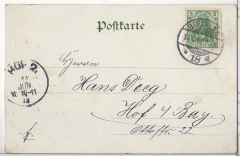 Postkarte
Herrn
Hans Deeg
Hof a/Bay.
Ottostr. 22
HOF 2.
JUN